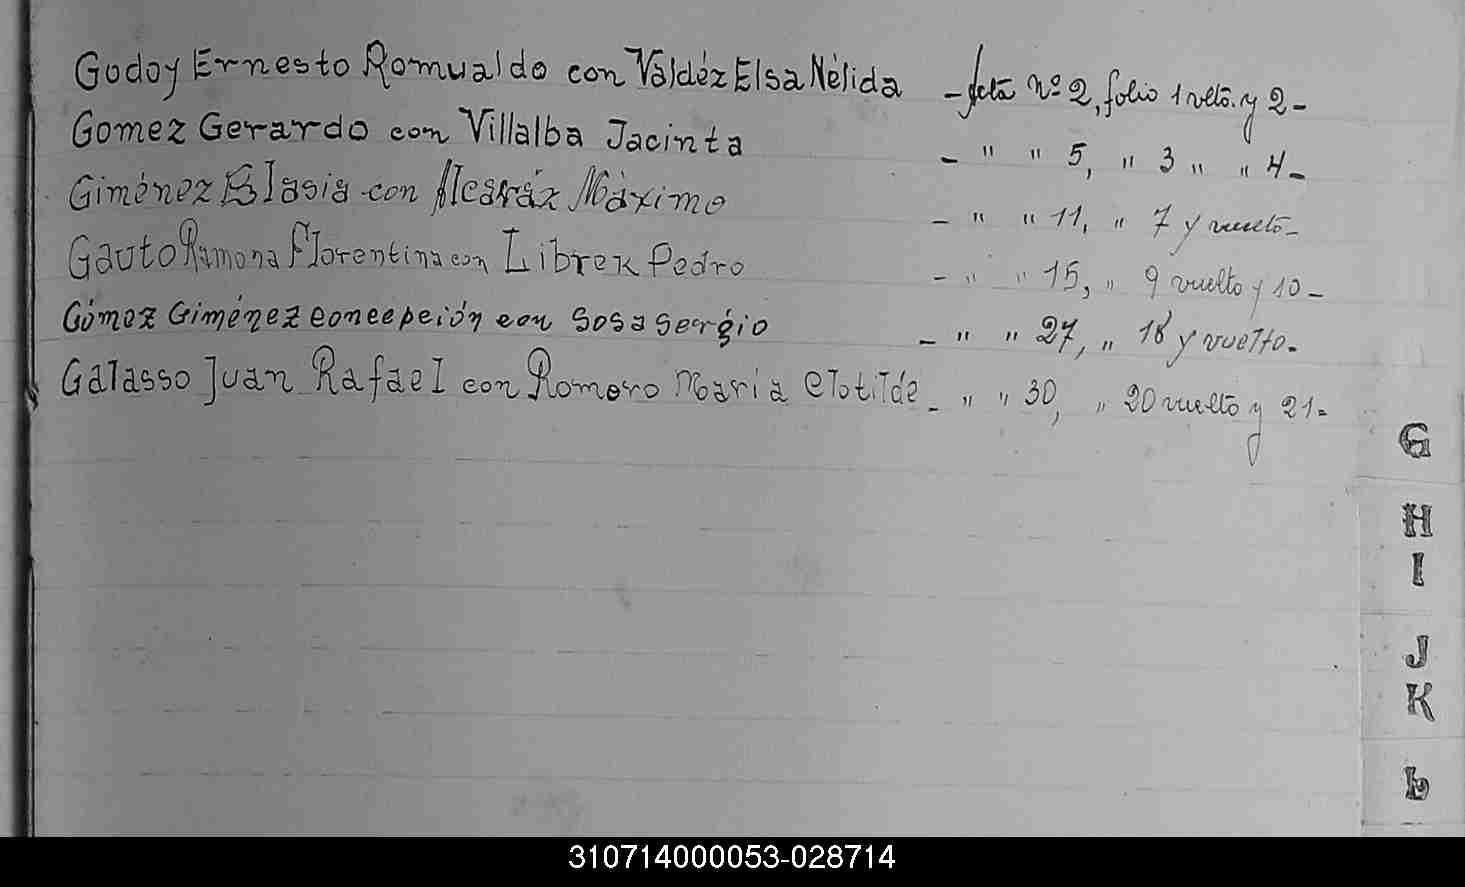 Godoy Ernesto Romualdo con Váldéz Elsa Nélida - Acta nº 2, folio 1 vltō. y 2-
Gomez Gerardo con Villalba Jacinta - " " 5, " 3 " " 4-
Giménez Blasia con Alcaráz Máximo - " " 11, " 7 y vueltō-
Gauto Ramona Florentina con Librek Pedro - " " 15, " 9 vuelto y 10-
Gómez Giménez Concepción con Sosa Sergio - " " 27, " 18 y vuelto-
Galasso Juan Rafael con Romero Maria Clotilde - " " 30, " 20 vueltō y 21-
G
H
I
J
K
L
310714000053-028714